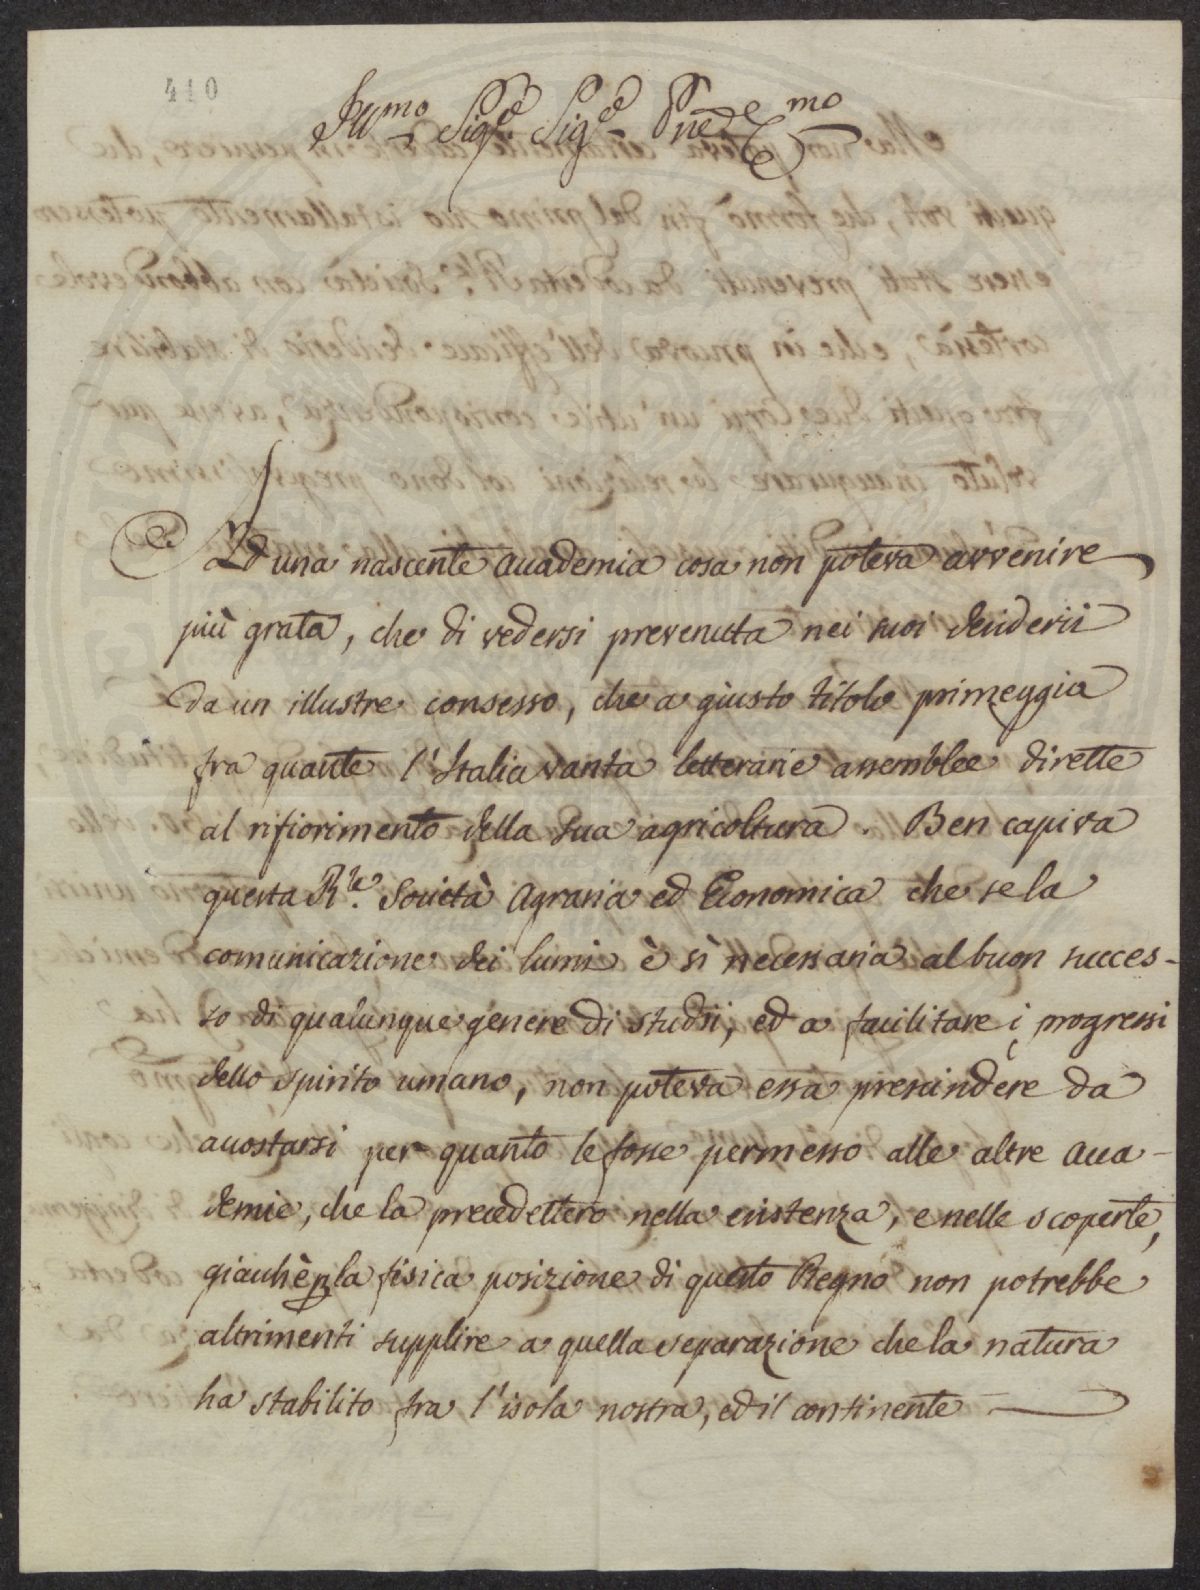 410
Ill.mo Sig.e Sig.e P.ne
Ad una nascente Accademia cosa non poteva avvenire
più grata, che di vedersi prevenuta nei suoi desiderii
da un illustre consesso, che a giusto titolo primeggia
fra quante l'Italia vanta letterarie assemblee dirette
al rifiorimento della sua agricoltura. Ben capiva
questa R.le Società Agraria ed Economica che se la
comunicazione dei lumi è sì necessaria al buon succes-
so di qualunque genere di studii, ed a facilitare i progressi
dello spirito umano, non poteva essa prescindere da
accostarsi per quanto le fosse permesso alle altre Acca-
demie, che la precedettero nella esistenza, e nelle scoperte,
giacchè la fisica posizione di questo Regno non potrebbe
altrimenti supplire a quella separazione che la natura
ha stabilito fra l'isola nostra, ed il continente